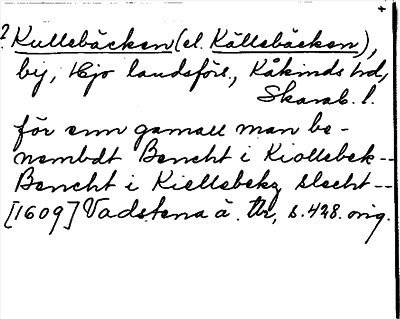 ? Kullebäcken (el. Källebäcken),
by, Hjo landsförs., Kåkinds hd,
Skarab. l.
för enn gamall man be-
nembdt Bencht i Kiollebek --
Bencht i Kiellebekz slecht --
[1609] Vadstena ä. Tb, s. 428. orig.